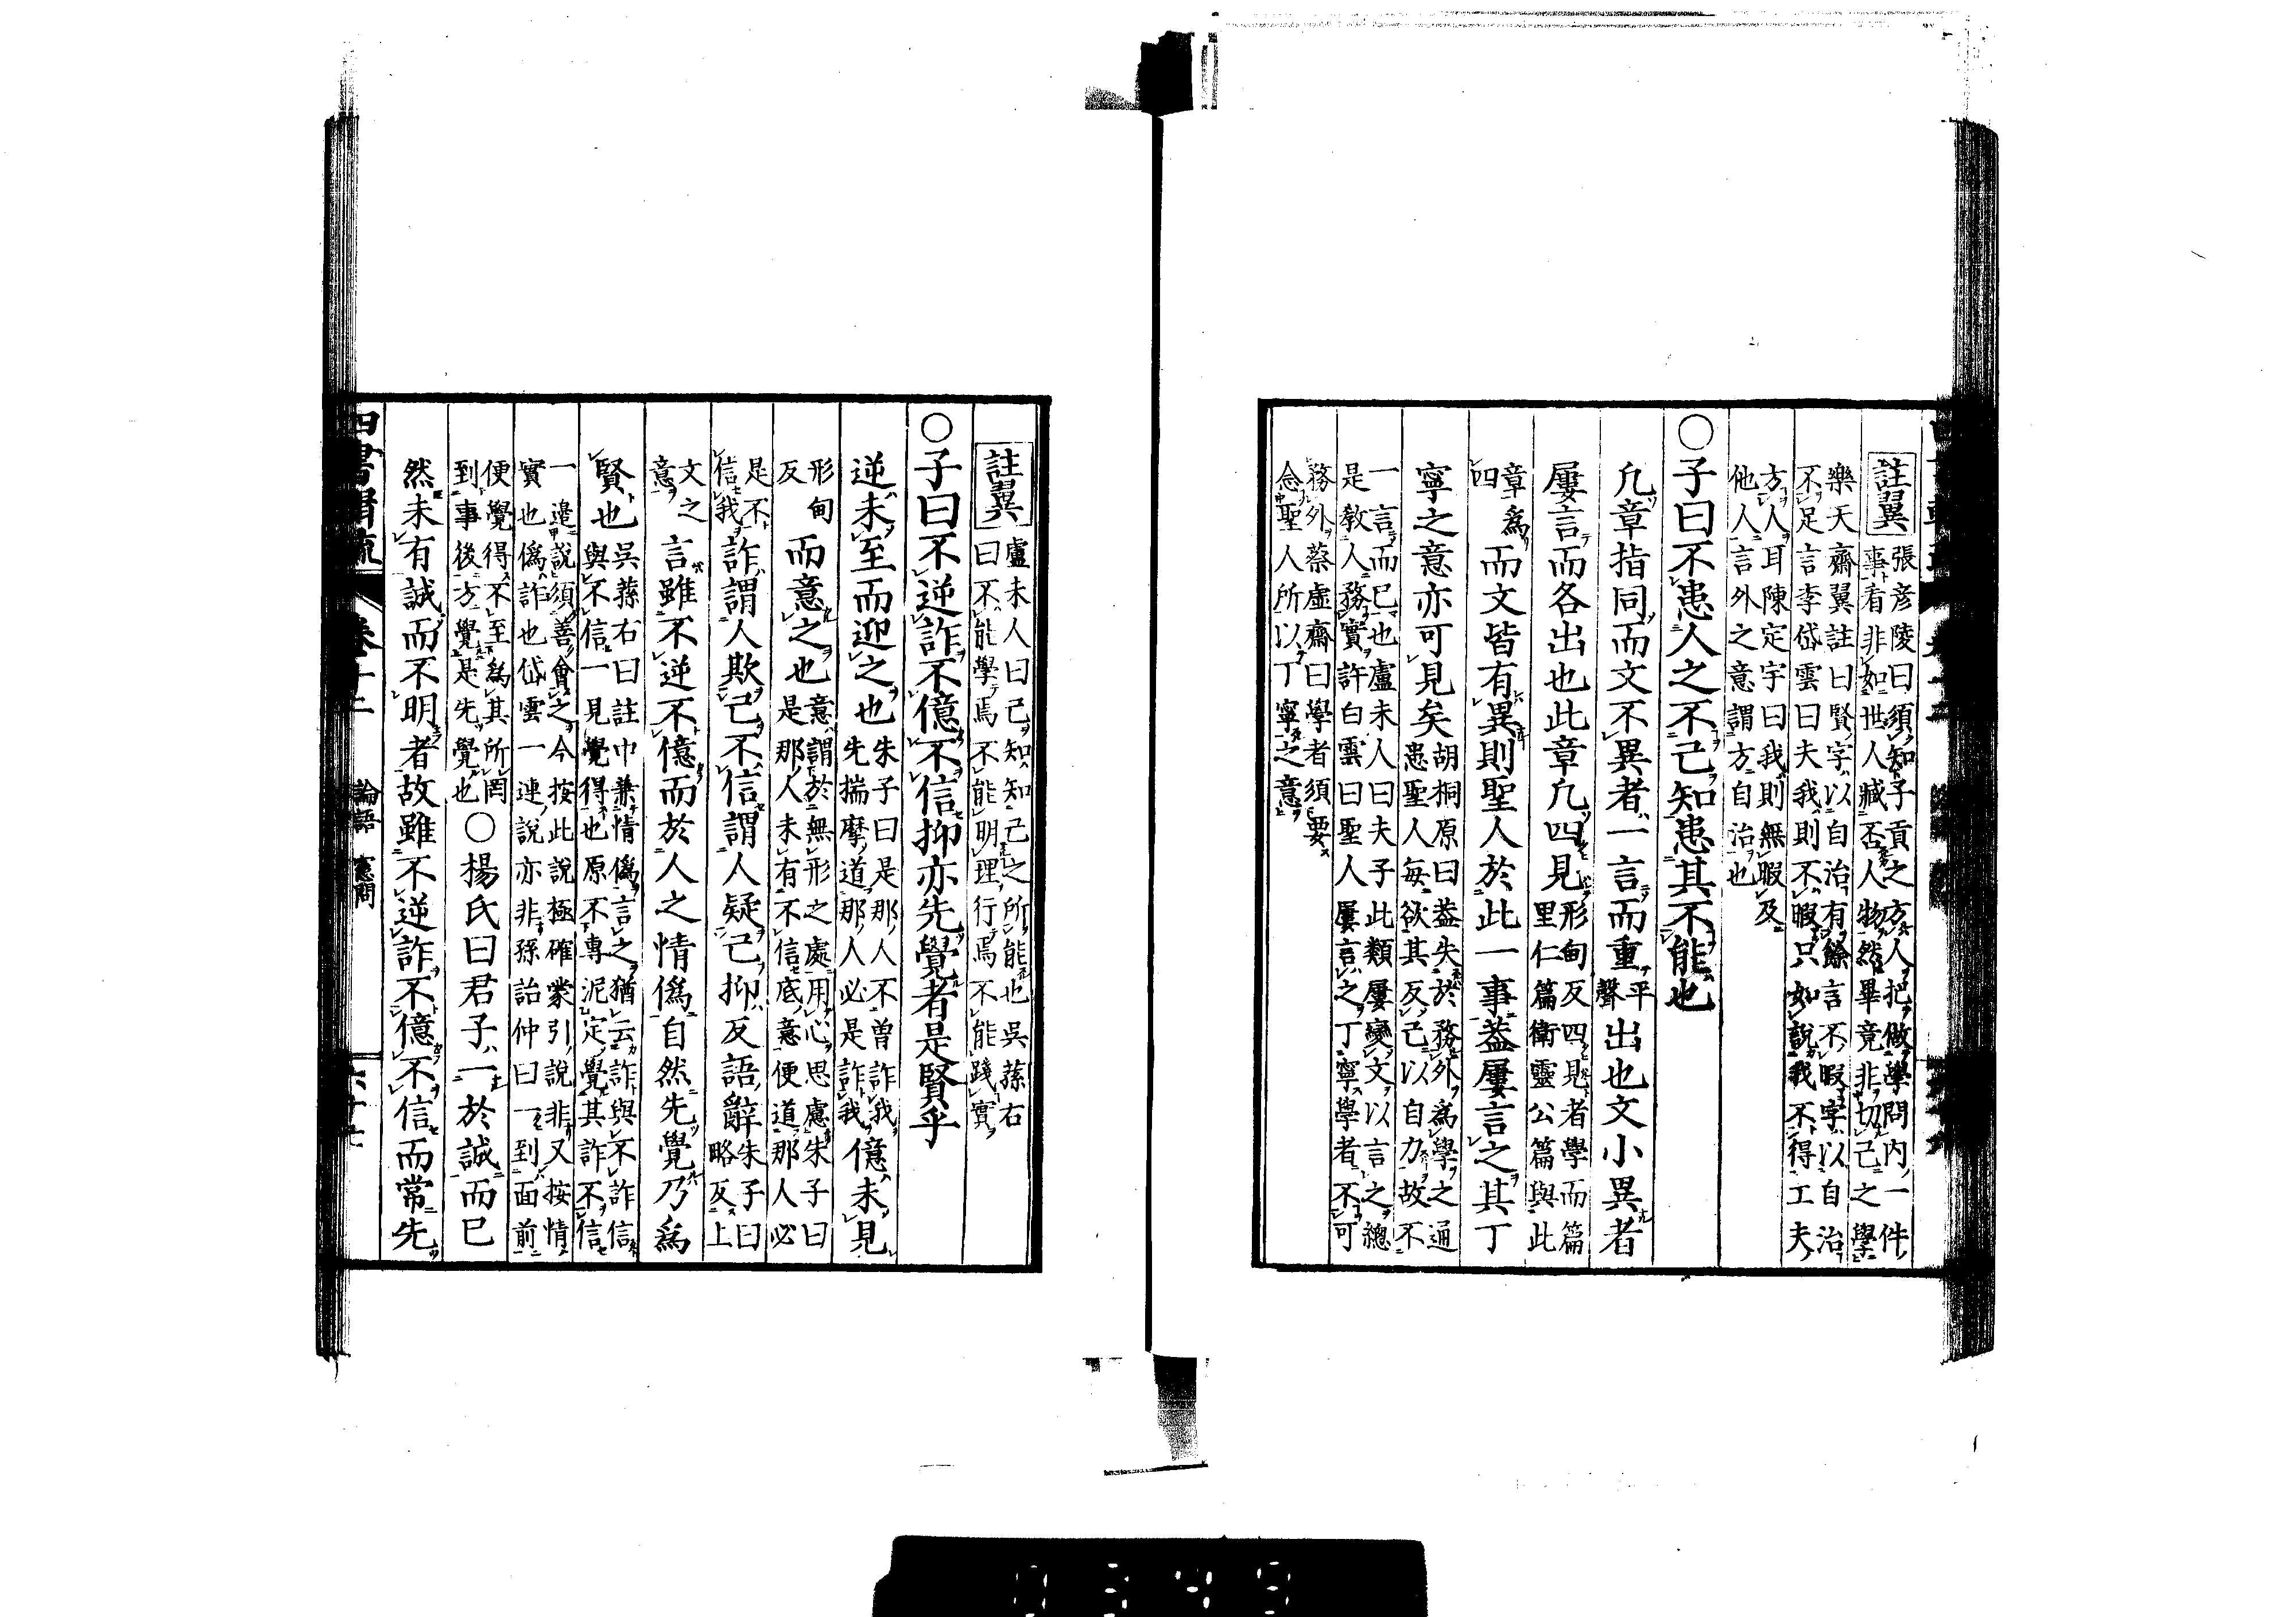 註翼
張彦陵曰須知子貢之方人把做學問内一件
事看非如世人臧否人物然畢竟非切己之學
樂天齋翼註曰賢字以自治有餘言不暇字以自治
不足言李岱雲曰夫我則不暇只如說我不得工夫
方人耳陳定宇曰我則無暇及
他人言外之意謂方自治也
○子曰不患人之不己知患其不能也
凡章指同而文不異者一言而重
平
聲
出也文小異者
屢言而各出也此章凡四見
形甸反四見者學而篇
里仁篇衛靈公篇與此
章爲
四
而文皆有異則聖人於此一事蓋屢言之其丁
寧之意亦可見矣
胡桐原曰蓋失於務外爲學之通
患聖人每欲其反己以自力故不
一言而已也盧未人曰夫子此類屢變文以言之總
是教人務實許白雲曰聖人屢言之丁寧學者不可
務外蔡虛齋曰學者須要
念聖人所以丁寧之意
註翼
盧未人曰己知知己之所能也吳蓀右
曰不能學焉不能明理行焉不能踐實
○子曰不逆詐不億不信抑亦先覺者是賢乎
逆未至而迎之也
朱子曰是那人不曾詐我
先揣摩道那人必是詐我
億未見
形甸
反
而意之也
意謂於無形之處用心思慮朱子曰
是那人未有不信底意便道那人必
是不
信我
詐謂人欺己不信謂人疑己抑反語辭
朱子曰
略反上
文之
意
言雖不逆不億而於人之情僞自然先覺乃爲
賢也
吳蓀右曰註中兼情僞言之猶云詐與不詐信
與不信一見覺得也原不專泥定覺其詐不信
一邊說須善會之今按此說極確蒙引說非又按情
實也僞詐也岱雲一連說亦非孫詒仲曰一到面前
便覺得不至爲其所罔
到事後方覺是先覺也
○楊氏曰君子一於誠而已
然未有誠而不明者故雖不逆詐不億不信而常先
論語
憲問